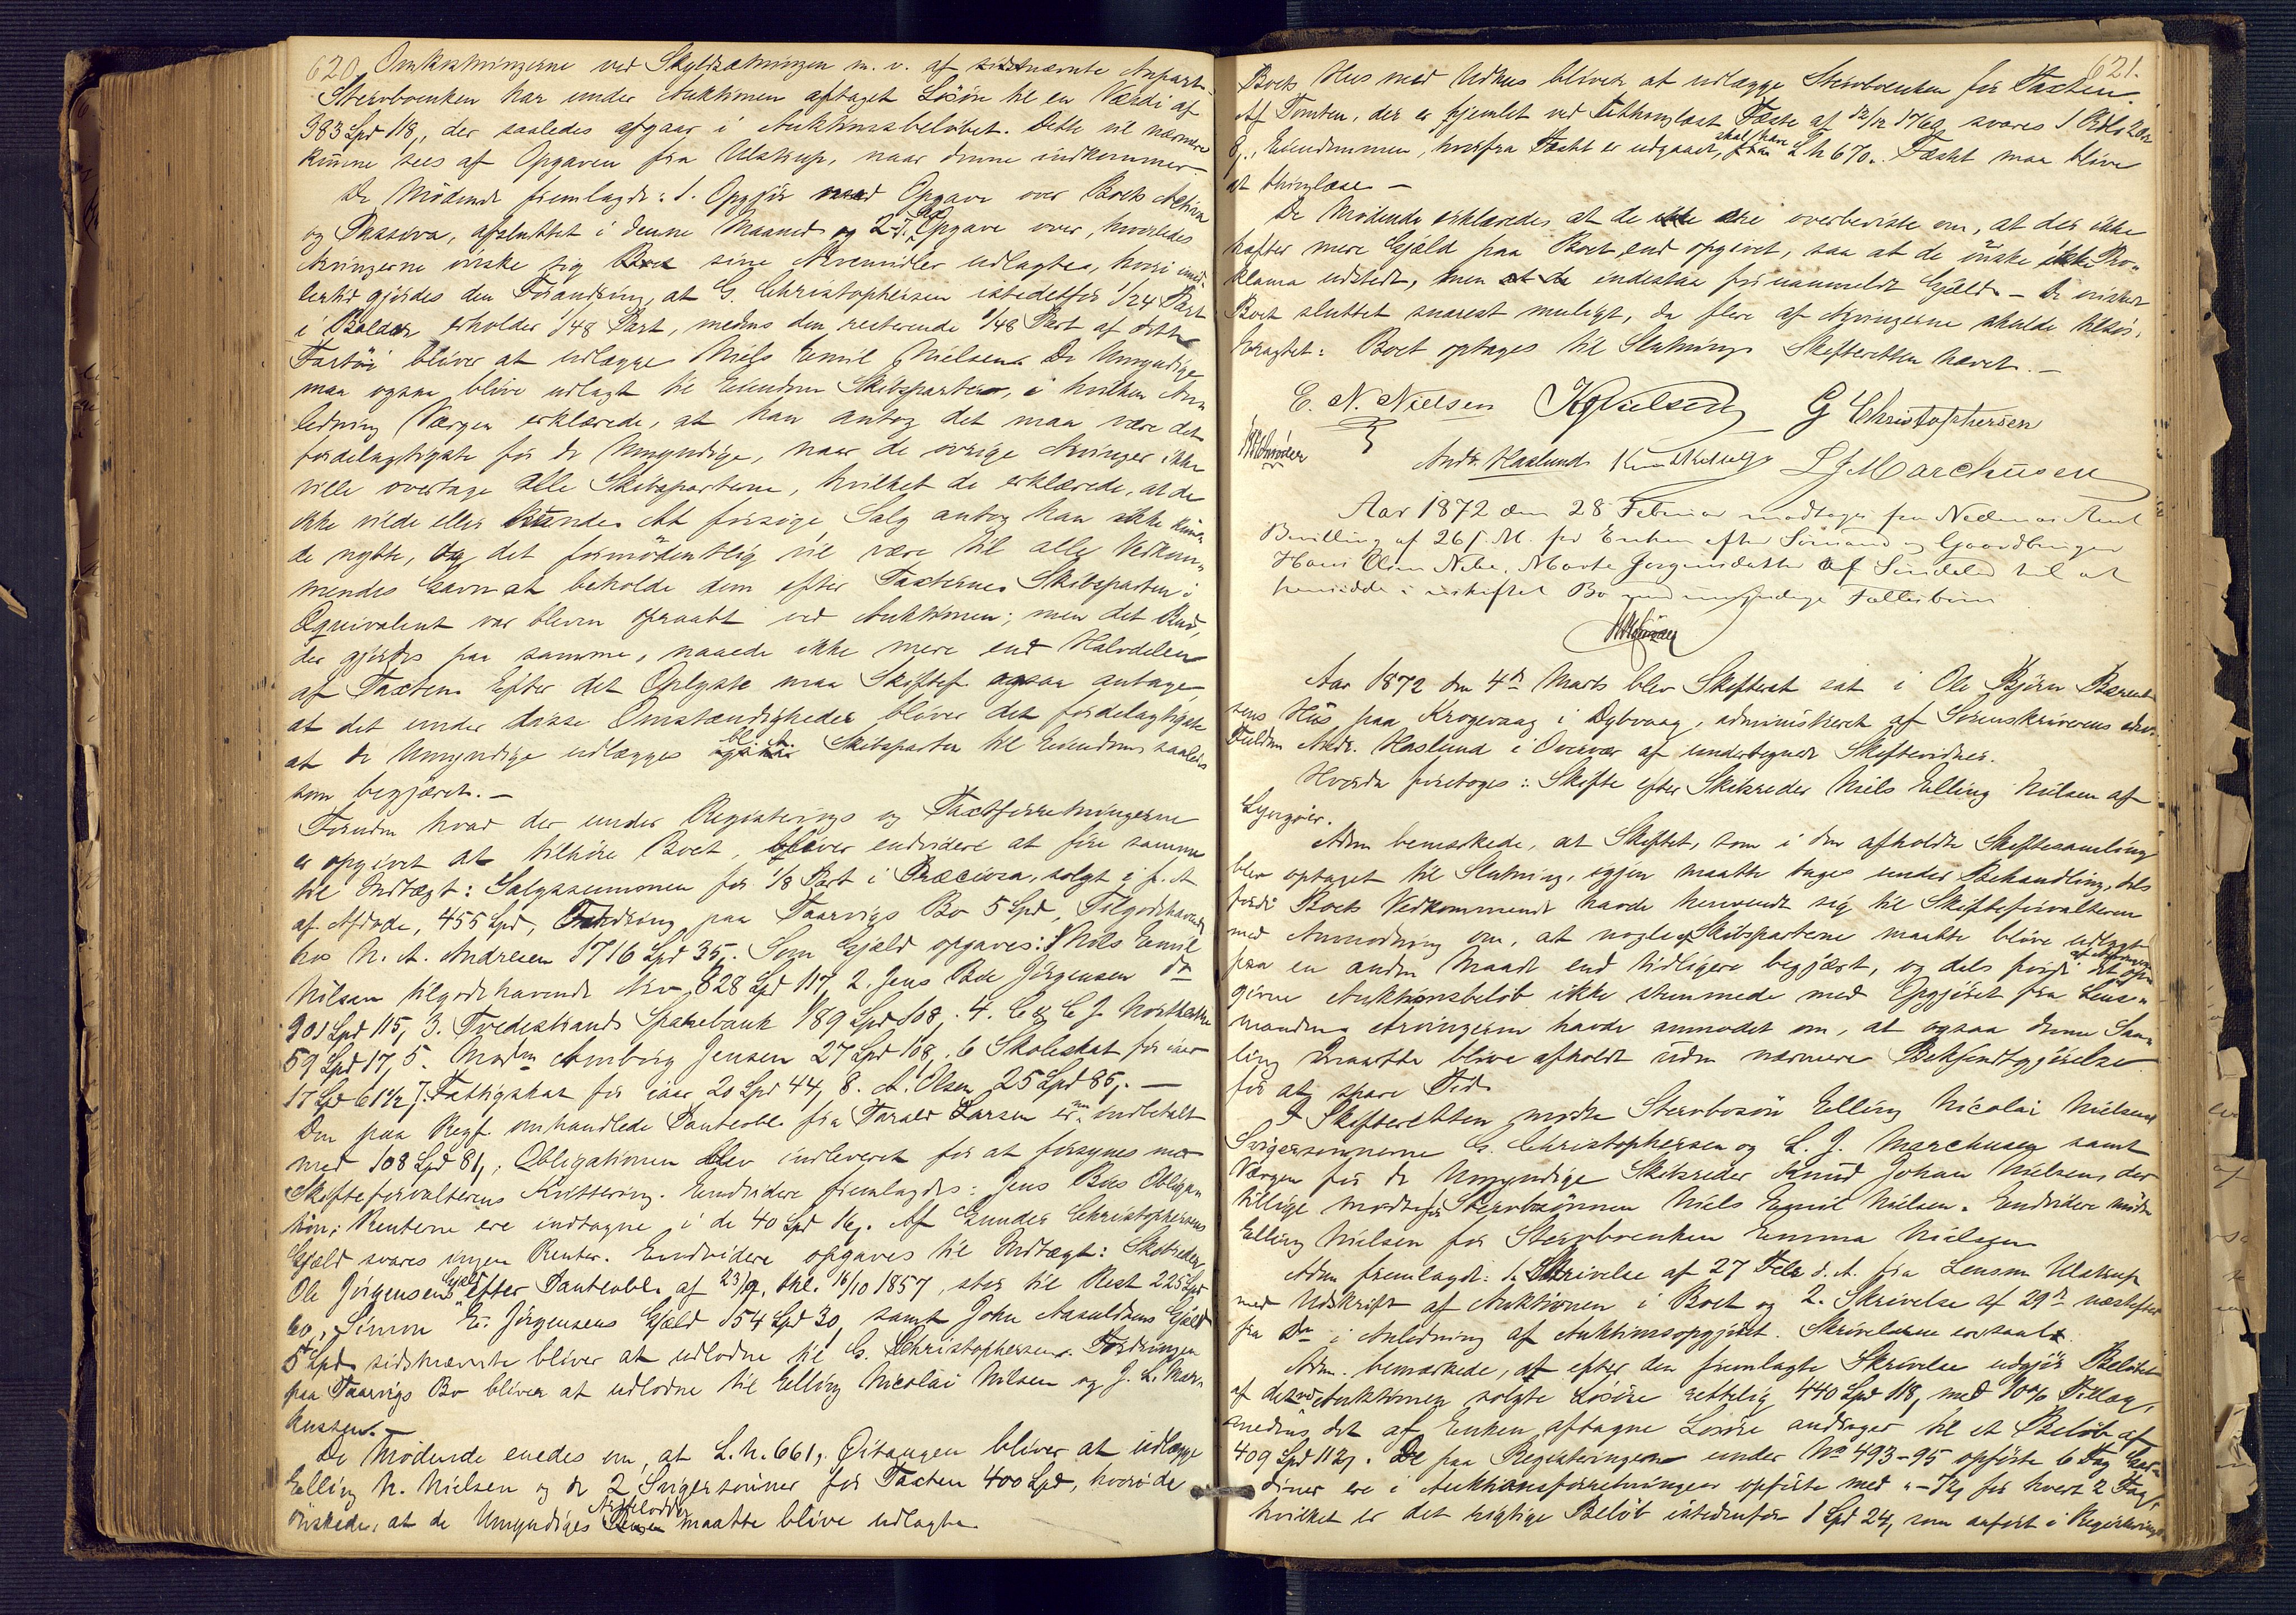 620
Omkostningerne ved Skyldsætningen m. v. af sidstnævnte Anpart.
Stervboenken har under Auktionen aftaget Løsøre til en Værdi af
383 Spd 118, der saaledes afgaar i Auktionsbeløbet. Dette vil nærmere
kunne sees af Opgaven fra Ulstrup, naar denne indkommer
De Mødende fremlagde: 1. Opgjør med Opgave over Boets Activa
og Passiva, afsluttet i denne Maaned og 2. Opgave over, hvorledes
Arvingerne ønske sig Boets sine Arvemidler udlagte, hvori imid-
lertid gjordes den Forandring, at G. Christophersen istedetfor 1/24 Part
i Balder erholder 1/48 Part, medens den resterende 1/48 Part af dette
Fartøi bliver at udlægge Niels Emil Nielsen. De Umyndige
maa ogsaa blive udlagt til Eiendom Skibsparter, i hvilken An-
ledning Værgen erklærede, at han antog det maa være det
fordelagtigste for de Umyndige, naar de øvrige Arvinger ikke
ville overtage alle Skibsparterne, hvilket de erklærede, at de
ikke vilde eller kunde. At forsøge Salg antog han ikke kunne
de nytte, og det formodentlig vil være til alle Vedkom-
mendes Gavn at beholde dem efter Taxterne. Skibsparten i
Æquivalent var bleven opraabt ved Auktionen; men det Bud,
der gjordes paa samme, naaede ikke mere end Halvdelen
af Taxten. Efter det Oplyste maa Skiftef. ogsaa antage,
at det under disse Omstændigheder bliver det fordelagtigste
at de Umyndige udlægges bl. A. Skibsparter til Eiendom saaledes
som begjæret. —
Foruden hvad der under Registrerings og Taxtforretningerne
er opgivet at tilhøre Boet, bliver endvidere at føre samme
til Indtægt: Salgssummen for 1/8 Part i Præciosa, solgt i f. A
af Afdøde, 455 Spd, Fordring paa Taarvigs Bo 5 Spd, Tilgodehavende
hos N. A. Andresen 1716 Spd 35,. Som Gjæld opgaves: 1 Niels Emil
Nielsen tilgodehavende Arv 828 Spd 117, 2. Jens Boe Jørgensen do
901 Spd 115, 3. Tvedestrands Sparebank 189 Spd 108,. 4. C & C J.
59 Spd 17, 5. Madm Amborg Jensen 27 Spd 108,. 6 Skoleskat for iaar
17 Spd 61 1/2, 7. Fattigskat for iaar 20 Spd 44, 8. A. Olsen 25 Spd 86,. —
Den paa Regf. omhandlede Panteobl. fra Tarald Larsen er nu indbetalt
med 108 Spd 81,; Obligationen blev indleveret for at forsynes med
Skifteforvalterens Kvittering. Endvidere fremlagdes: Jens Boes Obliga-
tion; Renterne ere indtagne i de 40 Spd 16,. Af Gunder Christophersens
Gjæld svares ingen Renter. Endvidere opgaves til Indtægt: Skibsreder
Ole Jørgensens Gjæld efter Panteobl. af 23/9, thl. 16/10 1857, stor til Rest 225 Spd
60, Simon E. Jørgensens Gjæld 154 Spd 30, samt John Aasuldsens Gjæld
5 Spd. sidstnævnte bliver at udlodne til G. Christophersen. Fordringen
paa Taarvigs Bo bliver at udlodne til Elling Nicolai Nielsen og J. L. Mar-
kussen. —
De Mødende enedes om, at L. N. 661, Øitangen bliver at udlægge
Elling N. Nielsen og de 2 Svigersønner for Taxten 400 Spd, hvori de
ønskede, at de Umyndiges Arvelodder maatte blive udlagte
621.
Boets Hus med Udhus bliver at udlægge Stervboenken for Taxten.
Af Tomten, der er hjemlet ved Fæste af 12/12 1762, svares 1 Rdl. 2 Ort
8,. Eiendommen, hvorfra Fæstet er udgaaet, skal have L N 670. Fæstet maa blive
at thinglæse —
De Mødende erklærede, at de ikke ere overbeviste om, at der ikke
hefter mere Gjæld paa Boet, end opgivet, saa at de ønske ikke Pro-
klama udstedt, men at de indestaa for uanmeldt Gjæld. — De ønskede
Boet sluttet snarest muligt, da flere af Arvingerne skulde tilsøs.
Eragtet: Boet optages til Slutning. Skifteretten hævet. —
E. N. Nielsen K J Nielsen G Christophersen
Andr. Haslund L J Marchussen
Aar 1872 den 28 Februar modtoges fra Nedenæs Amt
Bevilling af 26 f. M. for Enken efter Sømand og Gaardbruger
Hans Olsen Nibe, Marte Jørgensdatter af Søndeled til at
hensidde i uskiftet Bo med umyndige Fællesbørn
Aar 1872 den 4de Marts blev Skifteret sat i Ole Bjørn Berent-
sens Hus paa Krogevaag i Dybvaag, administreret af Sorenskriverens edsv.
Fuldm Andr. Haslund i Overvær af undertegnede Skiftevidner.
Hvorda foretoges: Skifte efter Skibsreder Niels Elling Nielsen af
Lyngøer.
Adm bemærkede, at Skiftet, som i den afholdte Skiftesamling
blev optaget til Slutning, igjen maatte tages under Behandling, dels
fordi Boets Vedkommende havde henvendt sig til Skifteforvalteren
med Anmodning om, at nogle af Skibsparterne maatte blive udlagte
paa en anden Maade end tidligere begjært, og dels fordi det af Arvingerne op-
givne Auktionsbeløb ikke stemmede med Opgjøret fra Lens-
manden. Arvingerne havde anmodet om, at ogsaa denne Sam-
ling maatte blive afholdt uden nærmere Bekjendtgjørelse
for at spare Tid.
I Skifteretten mødte Stervbosøn Elling Nicolai Nielsen
Svigersønnerne G. Christophersen og L. J. Marchussen samt
Værgen for de Umyndige Skibsreder Knud Johan Nielsen, der
tillige mødte for Stervbosønnen Niels Emil Nielsen. Endvidere mødte
Elling Nielsen for Stervboenken Emma Nielsen
Adm fremlagde: 1. Skrivelse af 27 Febr d. A. fra Lensm Ulstrup
med Udskrift af Auktionen i Boet og 2. Skrivelse af 29de næstefter
fra Do i Anledning af Auktionsopgjøret. Skrivelserne ere saal.
Adm. bemærkede, at efter den fremlagte Skrivelse udgjør Beløbet
af det ved Auktionen solgte Løsøre rettelig 440 Spd 118, med 10% Tillæg,
medens det af Enken aftagne Løsøre andrager til et Beløb af
409 Spd 112,. De paa Registreringen under No 493-95 opførte 6 Fag Gar-
diner ere i Auktionsforretningen opførte med "-72, for hvert 2 Fag,
hvilket er det rigtige Beløb istedenfor 1 Spd 24, som anført i Registrerings